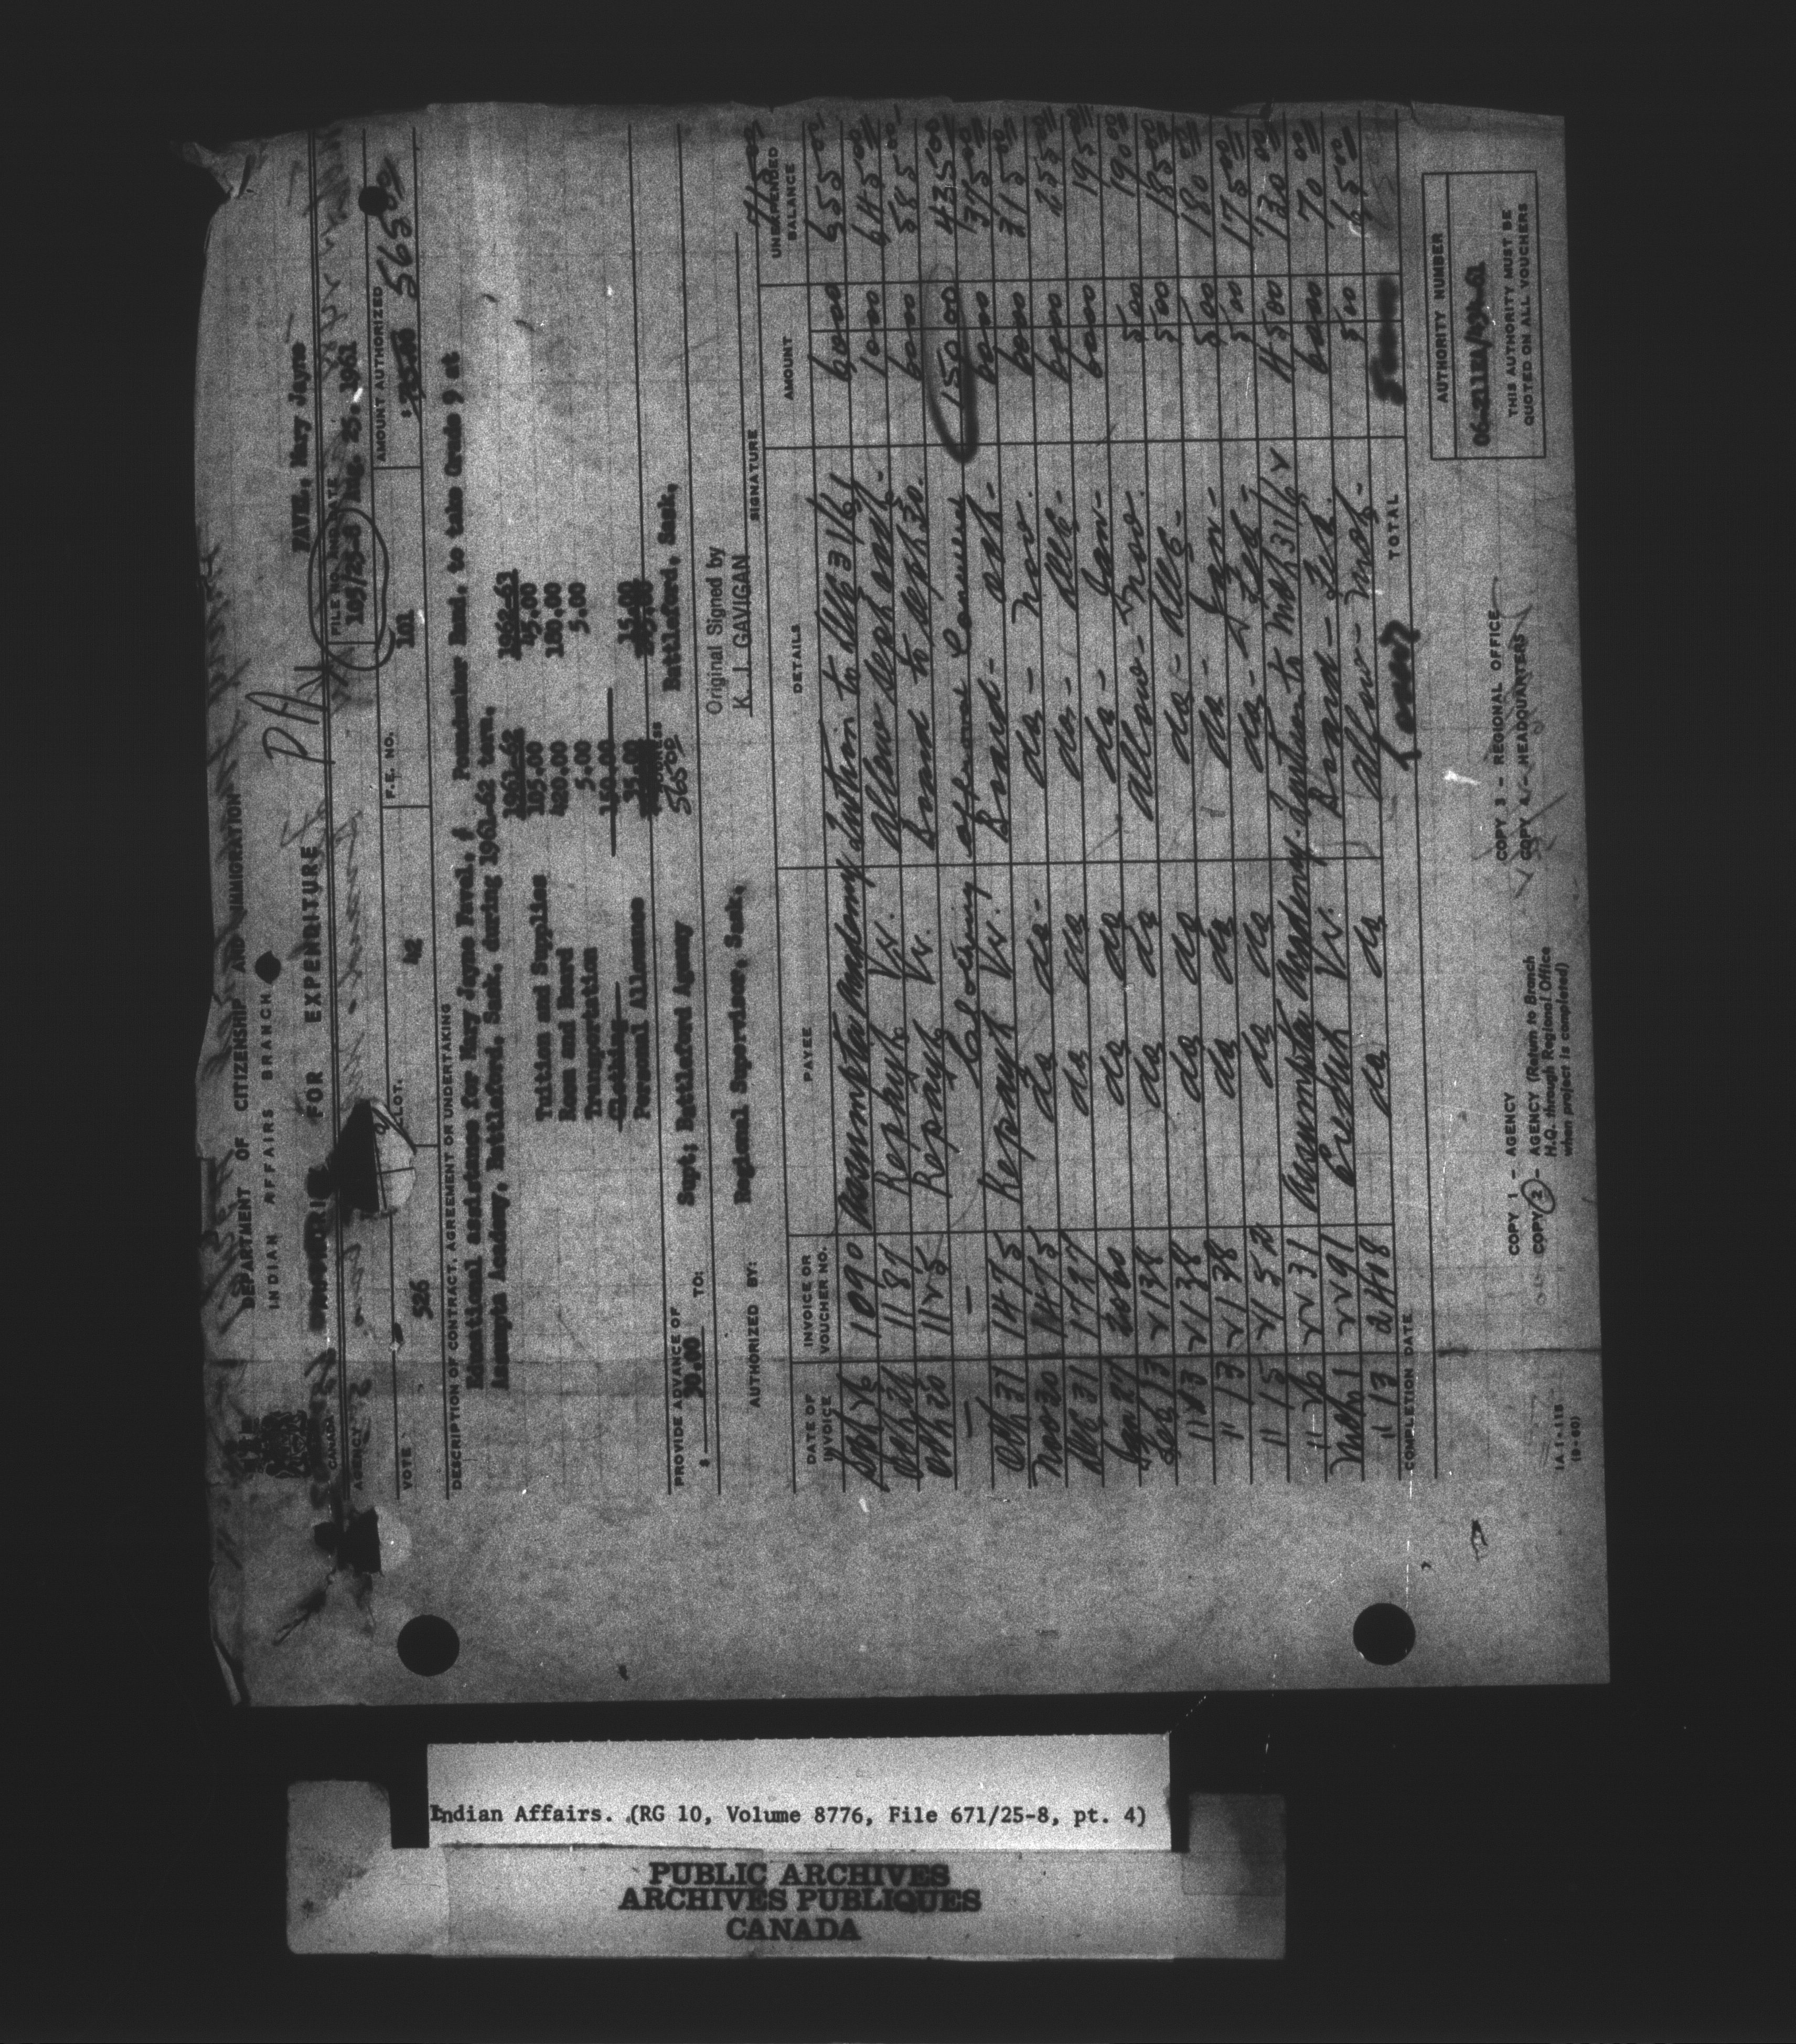 DEPARTMENT OF CITIZENSHIP AND IMMIGRATION
INDIAN AFFAIRS BRANCH
CANADA
FOR EXPENDITURE
PAYEL, Mary Jayne
AGENCY
FILE NO. AND DATE
105/25-8 Aug. 25, 1961
VOTE ALLOT. F.E. NO. AMOUNT AUTHORIZED
526 42 101 $ 565 00
DESCRIPTION OF CONTRACT, AGREEMENT OR UNDERTAKING
Educational assistance for Mary Jayne Faval, Poundmaker Band, to take Grade 9 at
Assumpta Academy, Battleford, Sask. during 1961-62 term.
1961-62 1962-63
Tuition and Supplies 105.00 45.00
Room and Board 420.00 180.00
Transportation 5.00 5.00
Clothing 150.00
Personal Allowance 35.00 15.00
565 00
PROVIDE ADVANCE OF
$ 30.00 TO: Supt; Battleford Agency Battleford, Sask.
AUTHORIZED BY: Regional Supervisor, Sask.
Original Signed by
K. J. GAVIGAN
SIGNATURE
715 00
DATE OF INVOICE INVOICE OR VOUCHER NO. PAYEE DETAILS AMOUNT UNEXPENDED BALANCE
1090 Assumpta Academy Tuition to Dec 31/61 60 00 655 00
1187 allow Sept Oct - 10 00 645 00
Oct 20 1125 Repayt Vr. Board to Sept 30. 60 00 585 00
— — Clothing allowance Cancelled 150 00 435 00
Oct 31 1475 Repayt Vr. Board - Oct - 60 00 375 00
Nov 30 1475 do do - do - Nov. 60 00 315 00
Dec 31 1797 do do do - Dec - 60 00 255 00
Jan 27 2060 do do do - Jan - 60 00 195 00
Feb 13 2138 do do Allow - Nov. 5 00 190 00
" 13 2138 do do do - Dec - 5 00 185 00
" 13 2138 do do do - Jan - 5 00 180 00
" 15 2152 do do do - Feb - 5 00 175 00
" 26 2231 Assumpta Academy - Tuition to Mch 31/62 45 00 130 00
Mch 1 2291 Credit Vr. Board - Feb. 60 00 70 00
" 13 2408 do do Allow - Mch - 5 00 65 00
COMPLETION DATE TOTAL
AUTHORITY NUMBER
THIS AUTHORITY MUST BE
QUOTED ON ALL VOUCHERS
COPY 1 - AGENCY
COPY 2 - AGENCY (Return to Branch
H.Q. through Regional Office
when project is completed)
COPY 3 - REGIONAL OFFICE
COPY 4 - HEADQUARTERS
IA 1-115
(10-60)
Indian Affairs. (RG 10, Volume 8776, File 671/25-8, pt. 4)
PUBLIC ARCHIVES
ARCHIVES PUBLIQUES
CANADA